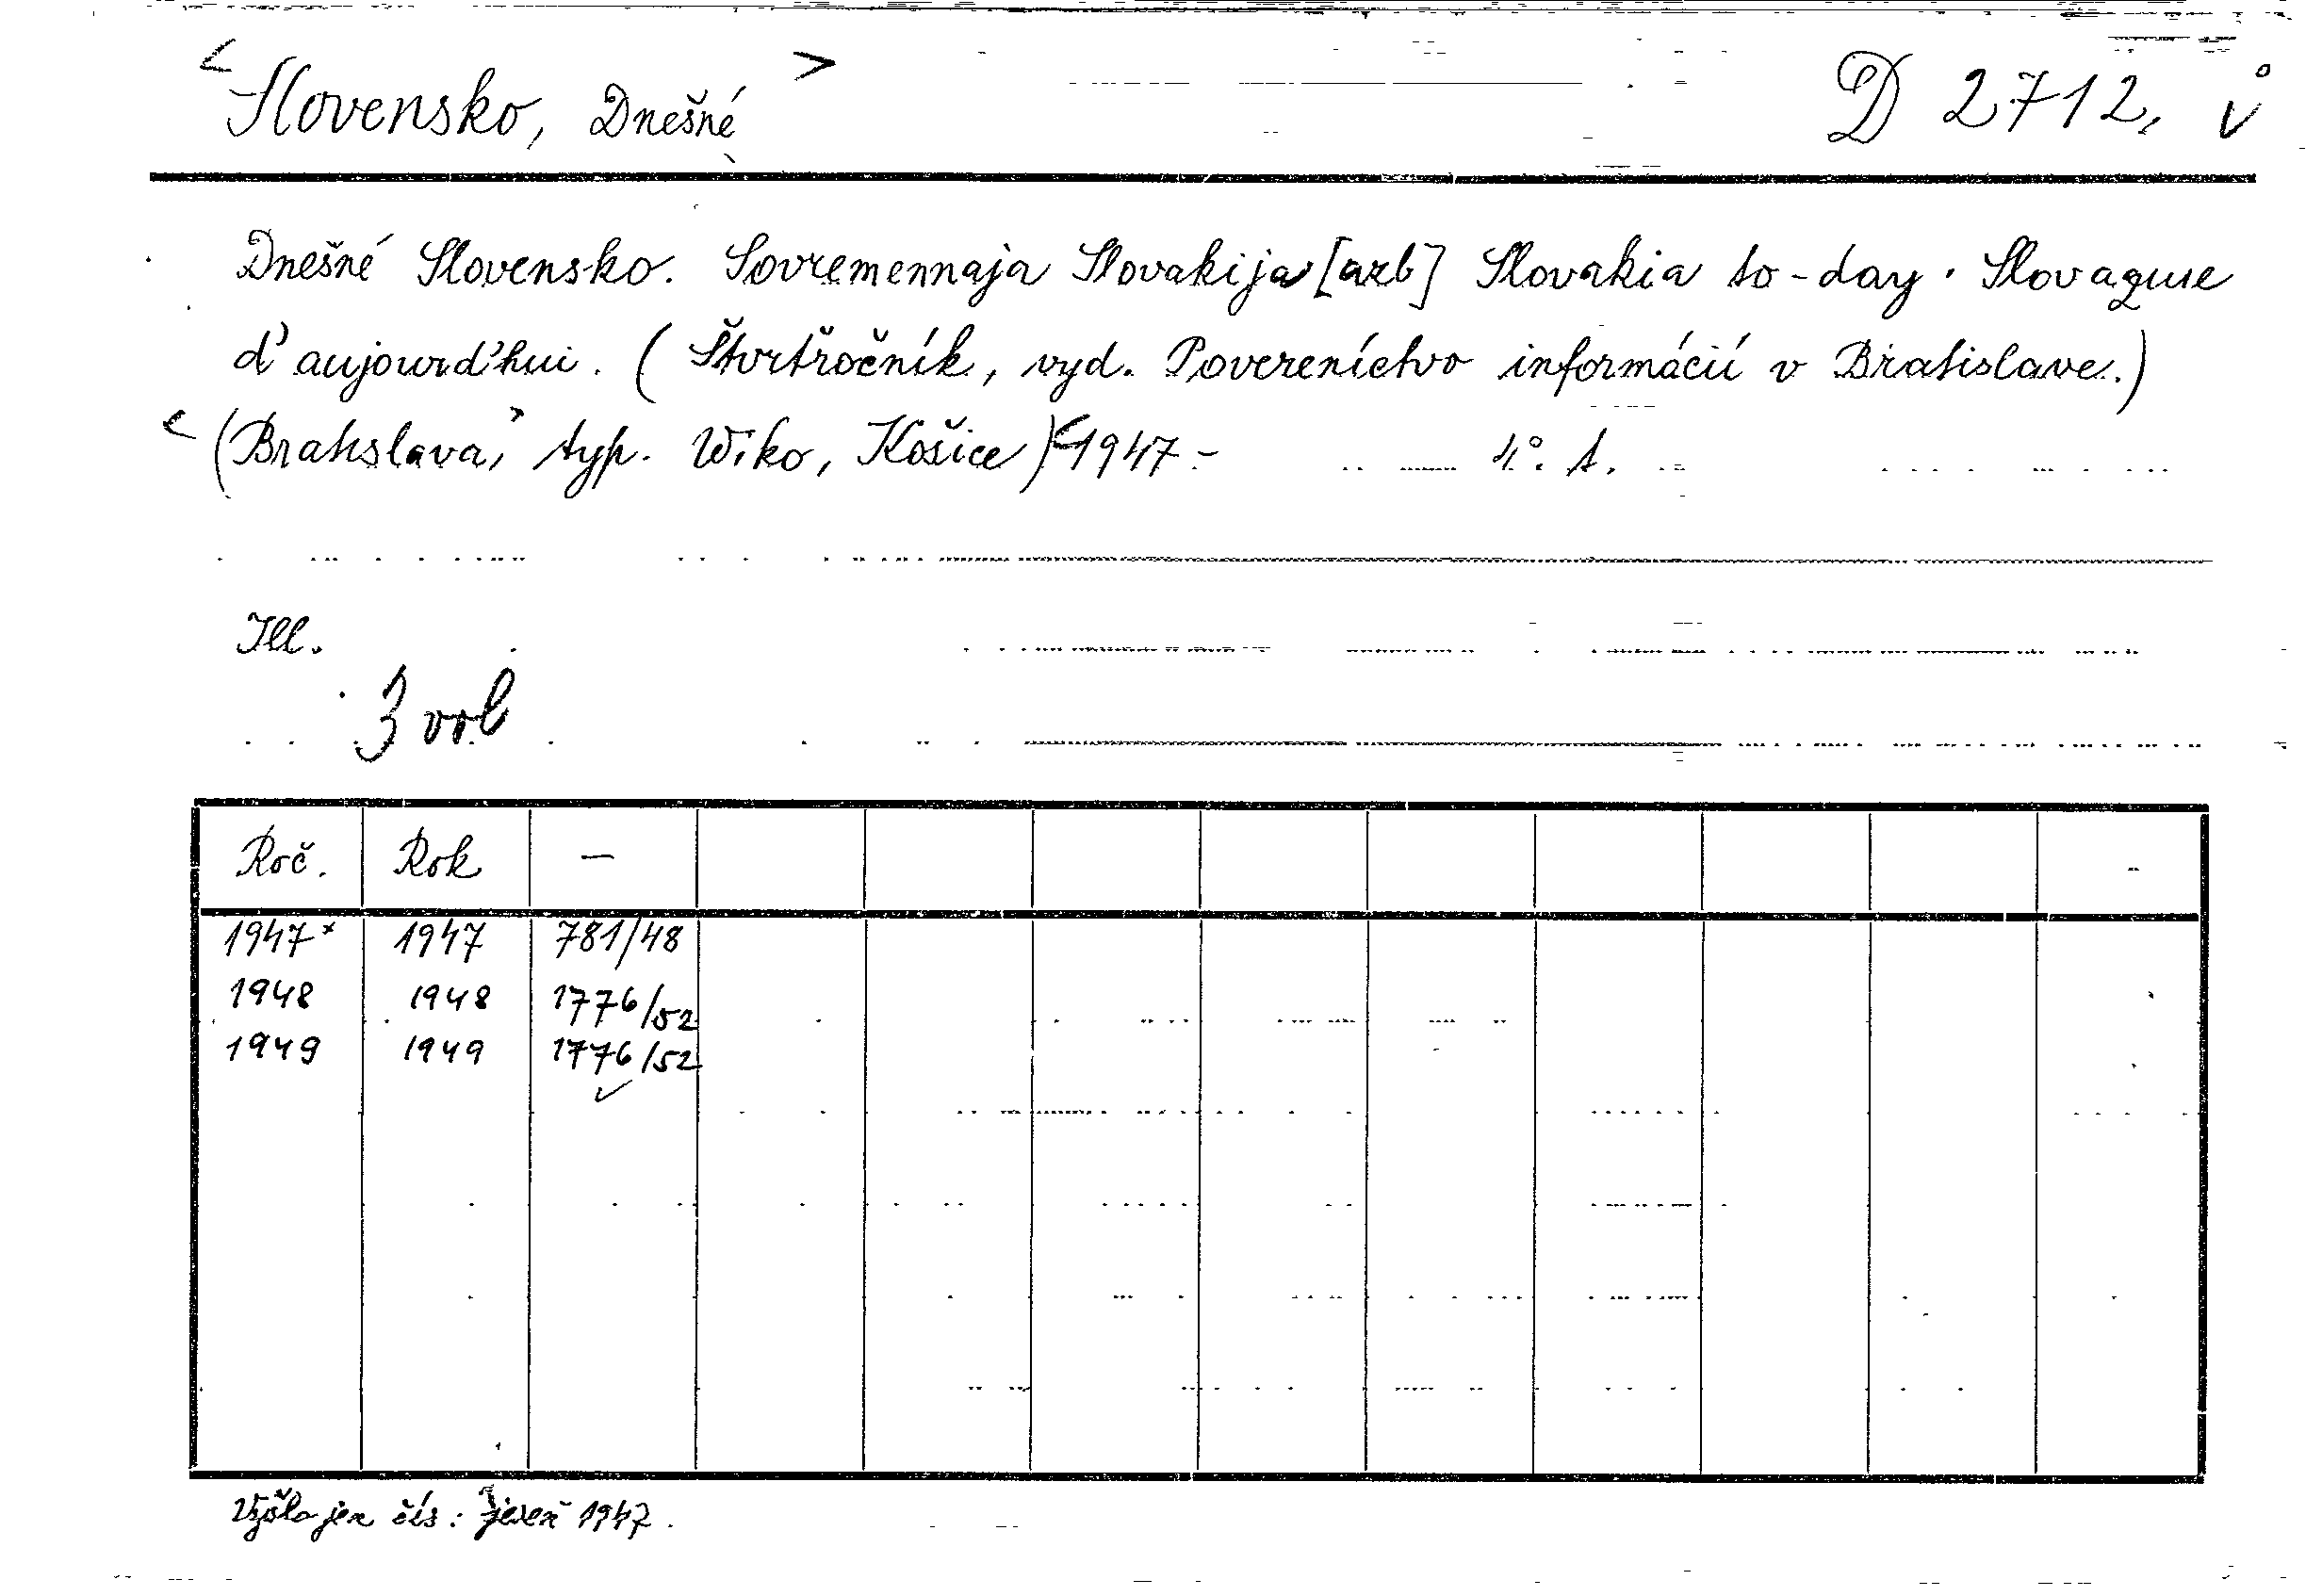 <Slovensko, Dnešné> D 2712, ů
Dnešné Slovensko. Sovremennaja Slovakija [azb] Slovakia to-day. Slovaque
d'aujourd'hui. (Štvrťročník, vyd. Povereníctvo informácií v Bratislave.)
<(Bratislava,> typ. Wiko, Košice)<1947.- 4°. t.
Ill.
3 vol
Roč. Rok —
1947* 1947 781/48
1948 1948 1776/52
1949 1949 1776/52
✓
Vyšlo jen čís: jeseň 1947.